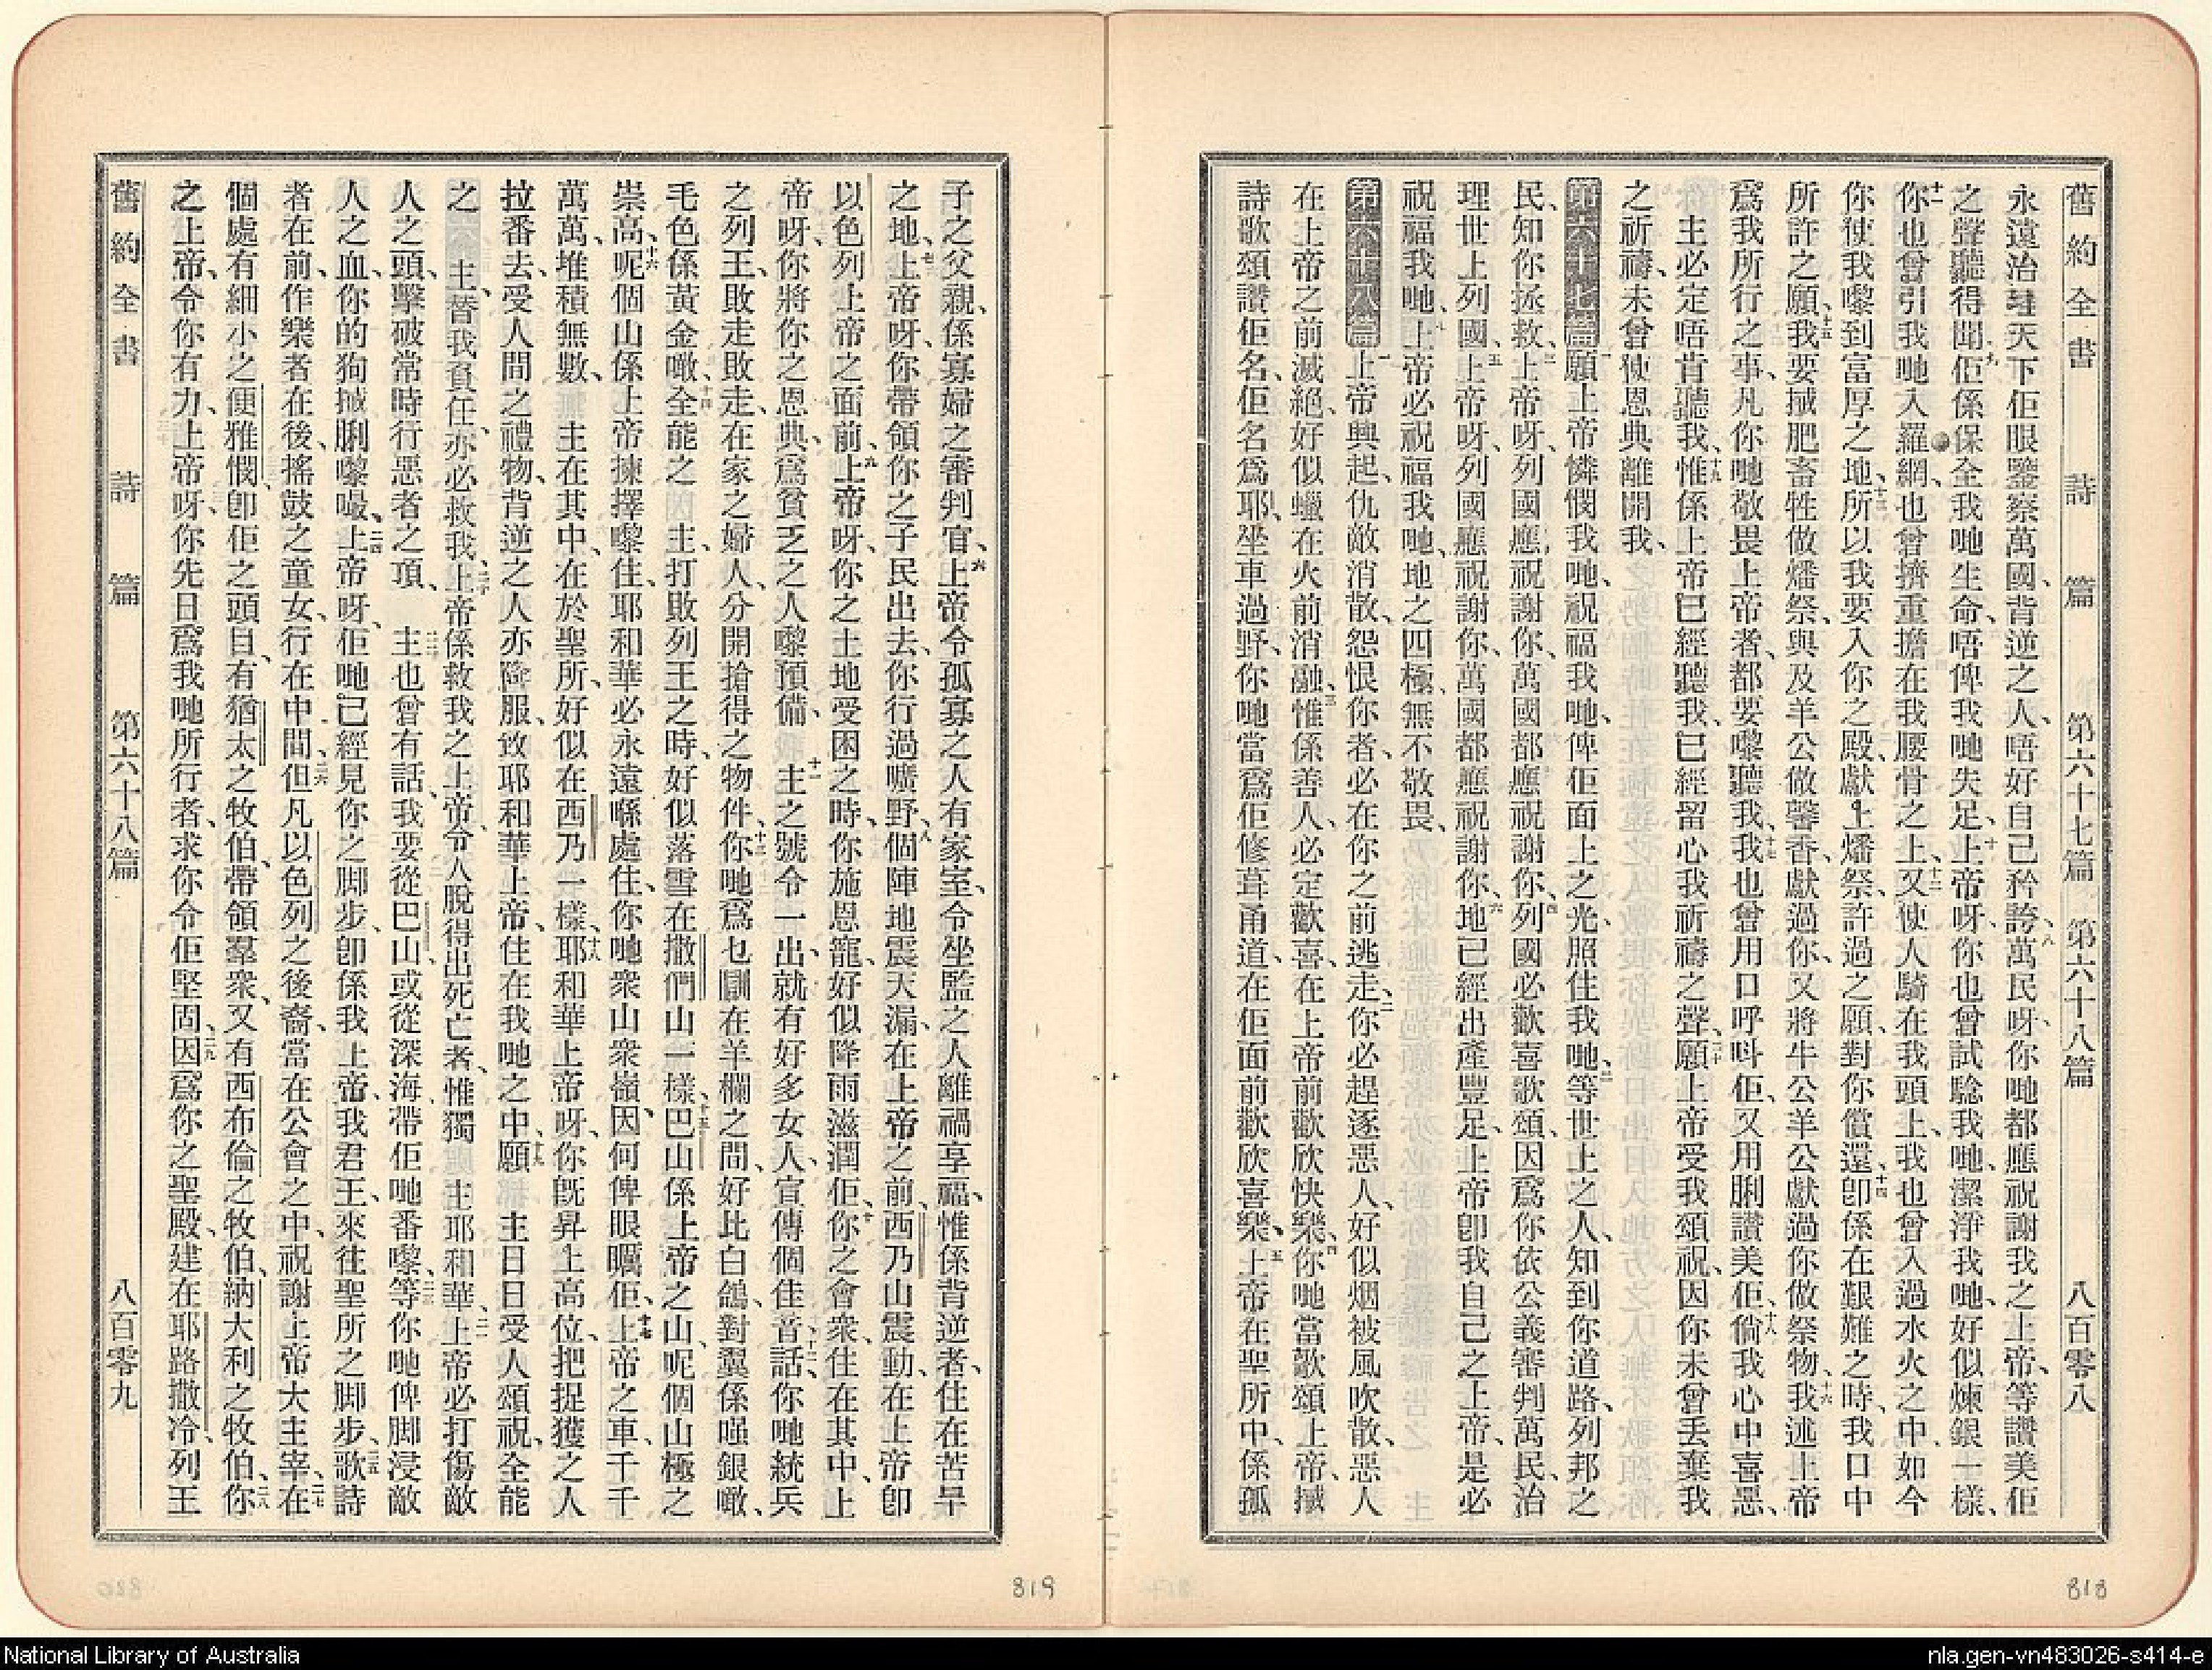 舊約全書　詩篇　第六十七篇　第六十八篇　八百零八
永遠治理天下佢眼鑒察萬國、背逆之人、唔好自己矜誇、八萬民呀、你哋都應祝謝我之上帝、等讚美佢
之聲聽得聞、九佢係保全我哋生命、唔俾我哋失足、十上帝呀、你也曾試騐我哋、潔淨我哋、好似煉銀一樣、
十一你也曾引我哋入羅網、也曾擠重擔在我腰骨之上、十二又使人騎在我頭上、我也曾入過水火之中、如今
你使我嚟到富厚之地、十三所以我要入你之殿、獻上燔祭、許過之願、對你償還、十四卽係在艱難之時、我口中
所許之願、十五我要㧣肥畜牲做燔祭、與及羊公做馨香、獻過你、又將牛公羊公獻過你做祭物、十六我述上帝
爲我所行之事、凡你哋敬畏上帝者、都要嚟聽我、十七我也曾用口呼呌佢、又用脷讚美佢、十八倘我心中喜惡、
主必定唔肯聽我、十九惟係上帝已經聽我、已經留心我祈禱之聲、二十願上帝受我頌祝、因你未曾丢棄我
之祈禱、未曾使恩典離開我、
第六十七篇　一願上帝憐憫我哋、祝福我哋、俾佢面上之光、照住我哋、二等世上之人、知到你道路、列邦之
民、知你拯救、三上帝呀、列國應祝謝你、萬國都應祝謝你、四列國必歡喜歌頌、因爲你依公義審判萬民、治
理世上列國、五上帝呀、列國應祝謝你、萬國都應祝謝你、六地已經出產豐足、上帝卽我自己之上帝、是必
祝福我哋、上帝必祝福我哋、地之四極、無不敬畏、
第六十八篇　一上帝興起、仇敵消散、怨恨你者、必在你之前逃走、二你必趕逐惡人、好似烟被風吹散、惡人
在上帝之前滅絕、好似蠟在火前消融、三惟係善人、必定歡喜、在上帝前歡欣快樂、四你哋當歌頌上帝、㧣
詩歌頌讚佢名、佢名爲耶、坐車過野、你哋當爲佢修葺甬道、在佢面前歡欣喜樂、五上帝在聖所中、係孤
子之父親、係寡婦之審判官、六上帝令孤寡之人有家室、令坐監之人離禍享福、惟係背逆者、住在苦旱
之地、七上帝呀、你帶領你之子民出去、你行過曠野、八個陣地震天漏、在上帝之前、西乃山震動、在上帝卽
以色列上帝之面前、九上帝呀、你之土地受困之時、你施恩寵、好似降雨滋潤佢、十你之會衆、住在其中、上
帝呀、你將你之恩典、爲貧乏之人嚟預備、十一主之號令一出、就有好多女人、宣傳個佳音話、十二你哋統兵
之列王、敗走敗走、在家之婦人、分開搶得之物件、十三你哋爲乜瞓在羊欄之間、好比白鴿、對翼係嗌銀嘅、
毛色係黃金嘅、十四全能之主、打敗列王之時、好似落雪在撒們山一樣、十五巴山係上帝之山、呢個山極之
崇高、十六呢個山係上帝揀擇嚟住、耶和華必永遠喺處住、你哋衆山衆嶺、因何俾眼矋佢、十七上帝之車千千
萬萬、堆積無數、主在其中、在於聖所、好似在西乃一樣、十八耶和華上帝呀、你旣昇上高位、把捉獲之人
拉番去、受人間之禮物、背逆之人亦降服、致耶和華上帝、住在我哋之中、十九願主日日受人頌祝、全能
之主、替我負任、亦必救我、二十上帝係救我之上帝、令人脫得出死亡者、惟獨主耶和華、二一上帝必打傷敵
人之頭、擊破常時行惡者之頂、二二主也曾有話、我要從巴山、或從深海、帶佢哋番嚟、二三等你哋俾脚浸敵
人之血、你的狗㧣脷嚟𠾴、二四上帝呀、佢哋已經見你之脚步、卽係我上帝、我君王、來往聖所之脚步、二五歌詩
者在前、作樂者在後、搖鼓之童女、行在中間、二六但凡以色列之後裔、當在公會之中、祝謝上帝大主宰、二七在
個處有細小之便雅憫、卽佢之頭目、有猶太之牧伯、帶領羣衆、又有西布倫之牧伯、納大利之牧伯、二八你
之上帝、令你有力、上帝呀、你先日爲我哋所行者、求你令佢堅固、二九因爲你之聖殿、建在耶路撒冷、列王
舊約全書　詩篇　第六十八篇　八百零九
818
819
National Library of Australia
nla.gen-vn483026-s414-e